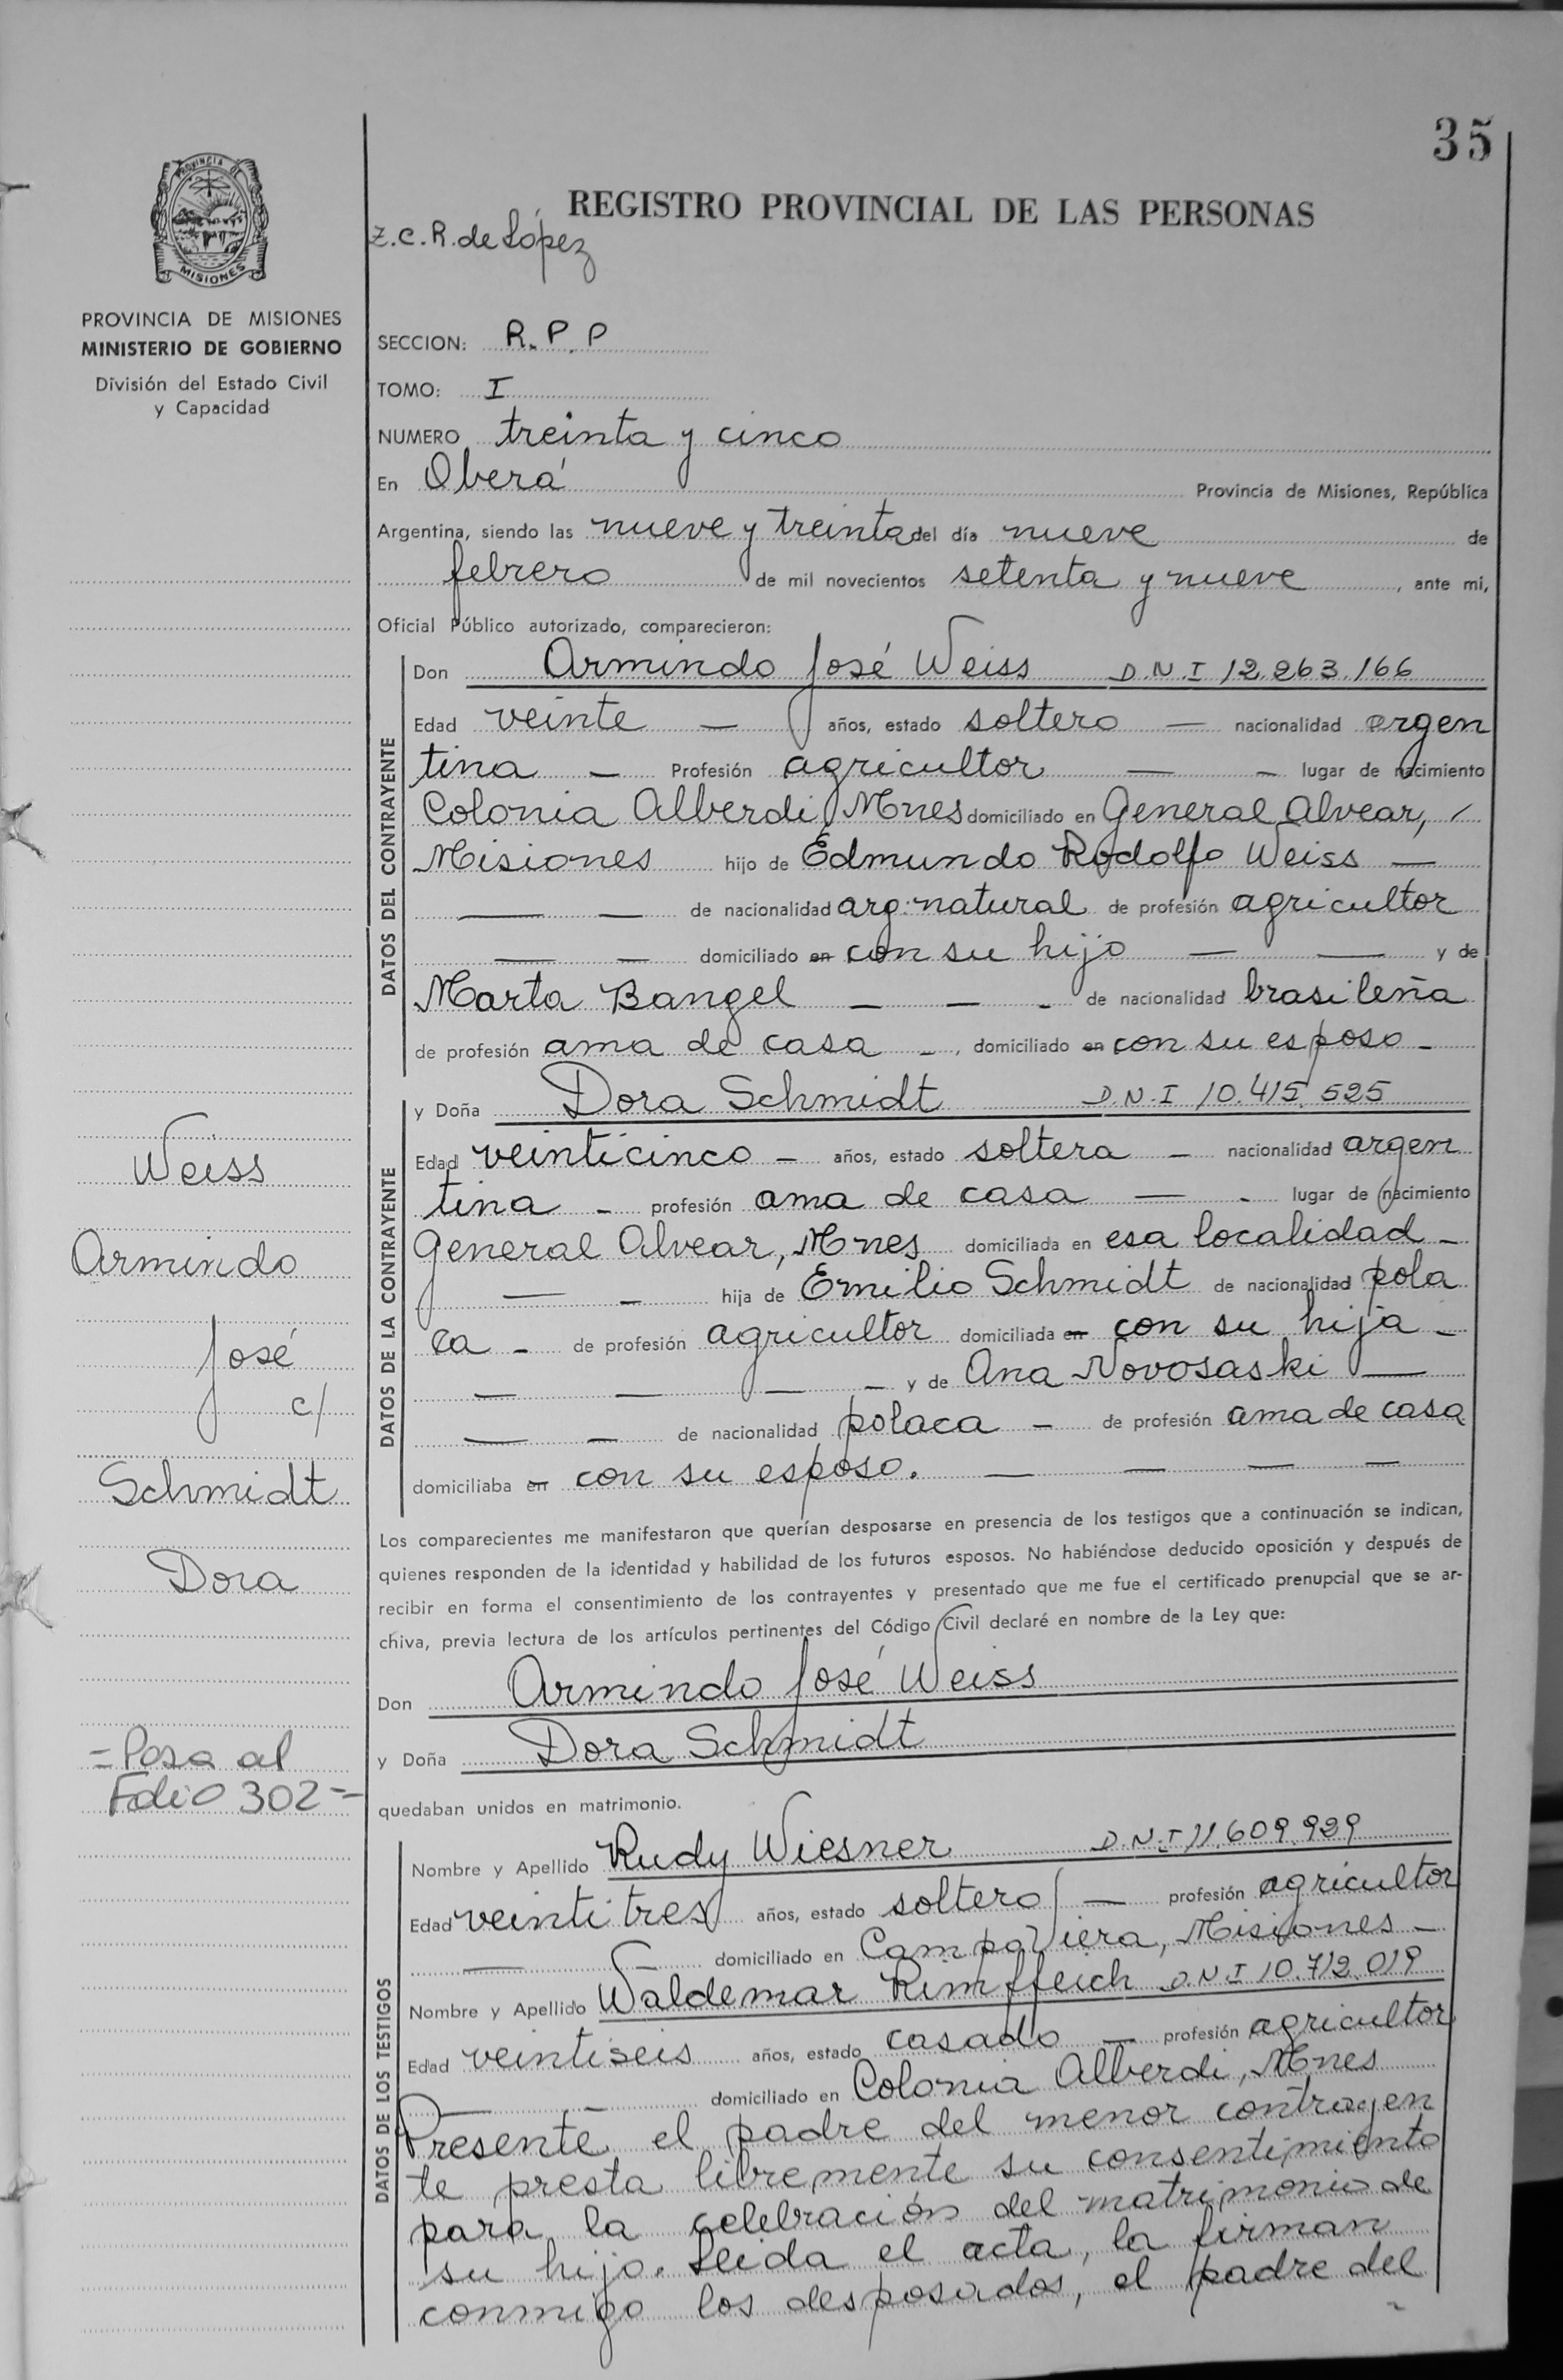 35
PROVINCIA DE
MISIONES
REGISTRO PROVINCIAL DE LAS PERSONAS
Z.C.R. de López
PROVINCIA DE MISIONES
MINISTERIO DE GOBIERNO
División del Estado Civil
y Capacidad
SECCION: R.P.P
TOMO: I
NUMERO treinta y cinco
En Oberá Provincia de Misiones, República
Argentina, siendo las nueve y treinta del día nueve de
febrero de mil novecientos setenta y nueve, ante mi,
Oficial Público autorizado, comparecieron:
DATOS DEL CONTRAYENTE
Don Armindo José Weiss D.N.I 12.263.166
Edad veinte — años, estado soltero — nacionalidad argen
tina — Profesión agricultor — — lugar de nacimiento
Colonia Alberdi, Mnes domiciliado en General Alvear, /
Misiones hijo de Edmundo Rodolfo Weiss —
— — de nacionalidad arg. natural de profesión agricultor
— — domiciliado en con su hijo — — y de
Marta Bangel — — - de nacionalidad brasileña
de profesión ama de casa -, domiciliado en con su esposo -
DATOS DE LA CONTRAYENTE
y Doña Dora Schmidt D.N.I 10.415.525
Edad veinticinco - años, estado soltera - nacionalidad argen
tina - profesión ama de casa — - lugar de nacimiento
General Alvear, Mnes domiciliada en esa localidad -
— - hija de Emilio Schmidt de nacionalidad pola
ca - de profesión agricultor domiciliada en con su hija -
— — — - y de Ana Novosaski —
— — de nacionalidad polaca - de profesión ama de casa
domiciliaba en con su esposo. — — — —
Los comparecientes me manifestaron que querían desposarse en presencia de los testigos que a continuación se indican,
quienes responden de la identidad y habilidad de los futuros esposos. No habiéndose deducido oposición y después de
recibir en forma el consentimiento de los contrayentes y presentado que me fue el certificado prenupcial que se ar-
chiva, previa lectura de los artículos pertinentes del Código Civil declaré en nombre de la Ley que:
Don Armindo José Weiss
y Doña Dora Schmidt
quedaban unidos en matrimonio.
Weiss
Armindo
José
c/
Schmidt
Dora
= Pasa al
Folio 302 =
DATOS DE LOS TESTIGOS
Nombre y Apellido Rudy Wiesner D.N.I 11.609.929
Edad veintitres años, estado soltero — profesión agricultor
— domiciliado en Campo Viera, Misiones -
Nombre y Apellido Waldemar Rimffeich D.N.I 10.712.019
Edad veintiseis años, estado casado — profesión agricultor
— - domiciliado en Colonia Alberdi, Mnes
Presente el padre del menor contrayen
te presta libremente su consentimiento
para la celebración del matrimonio de
su hijo. Leida el acta, la firman
conmigo los desposados, el padre del